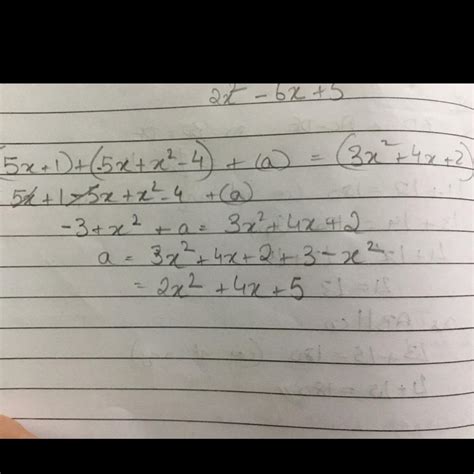 2x² - 6x + 5
(5x+1) + (-5x + x² - 4) + (a) = (3x² + 4x + 2)
5x + 1 - 5x + x² - 4 + (a)
-3 + x² + a = 3x² + 4x + 2
a = 3x² + 4x + 2 + 3 - x²
= 2x² + 4x + 5